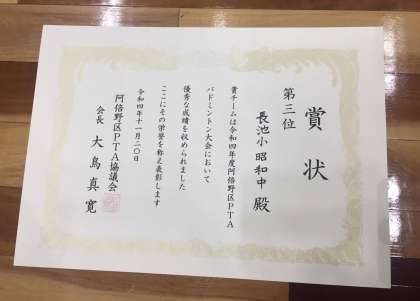 賞状
第三位
長池小昭和中殿
貴チームは令和四年度阿倍野区PTA
バドミントン大会において
優秀な成績を収められました
ここにその栄誉を称え表彰します
令和四年十一月二〇日
阿倍野区PTA協議会
会長 大鳥真寛